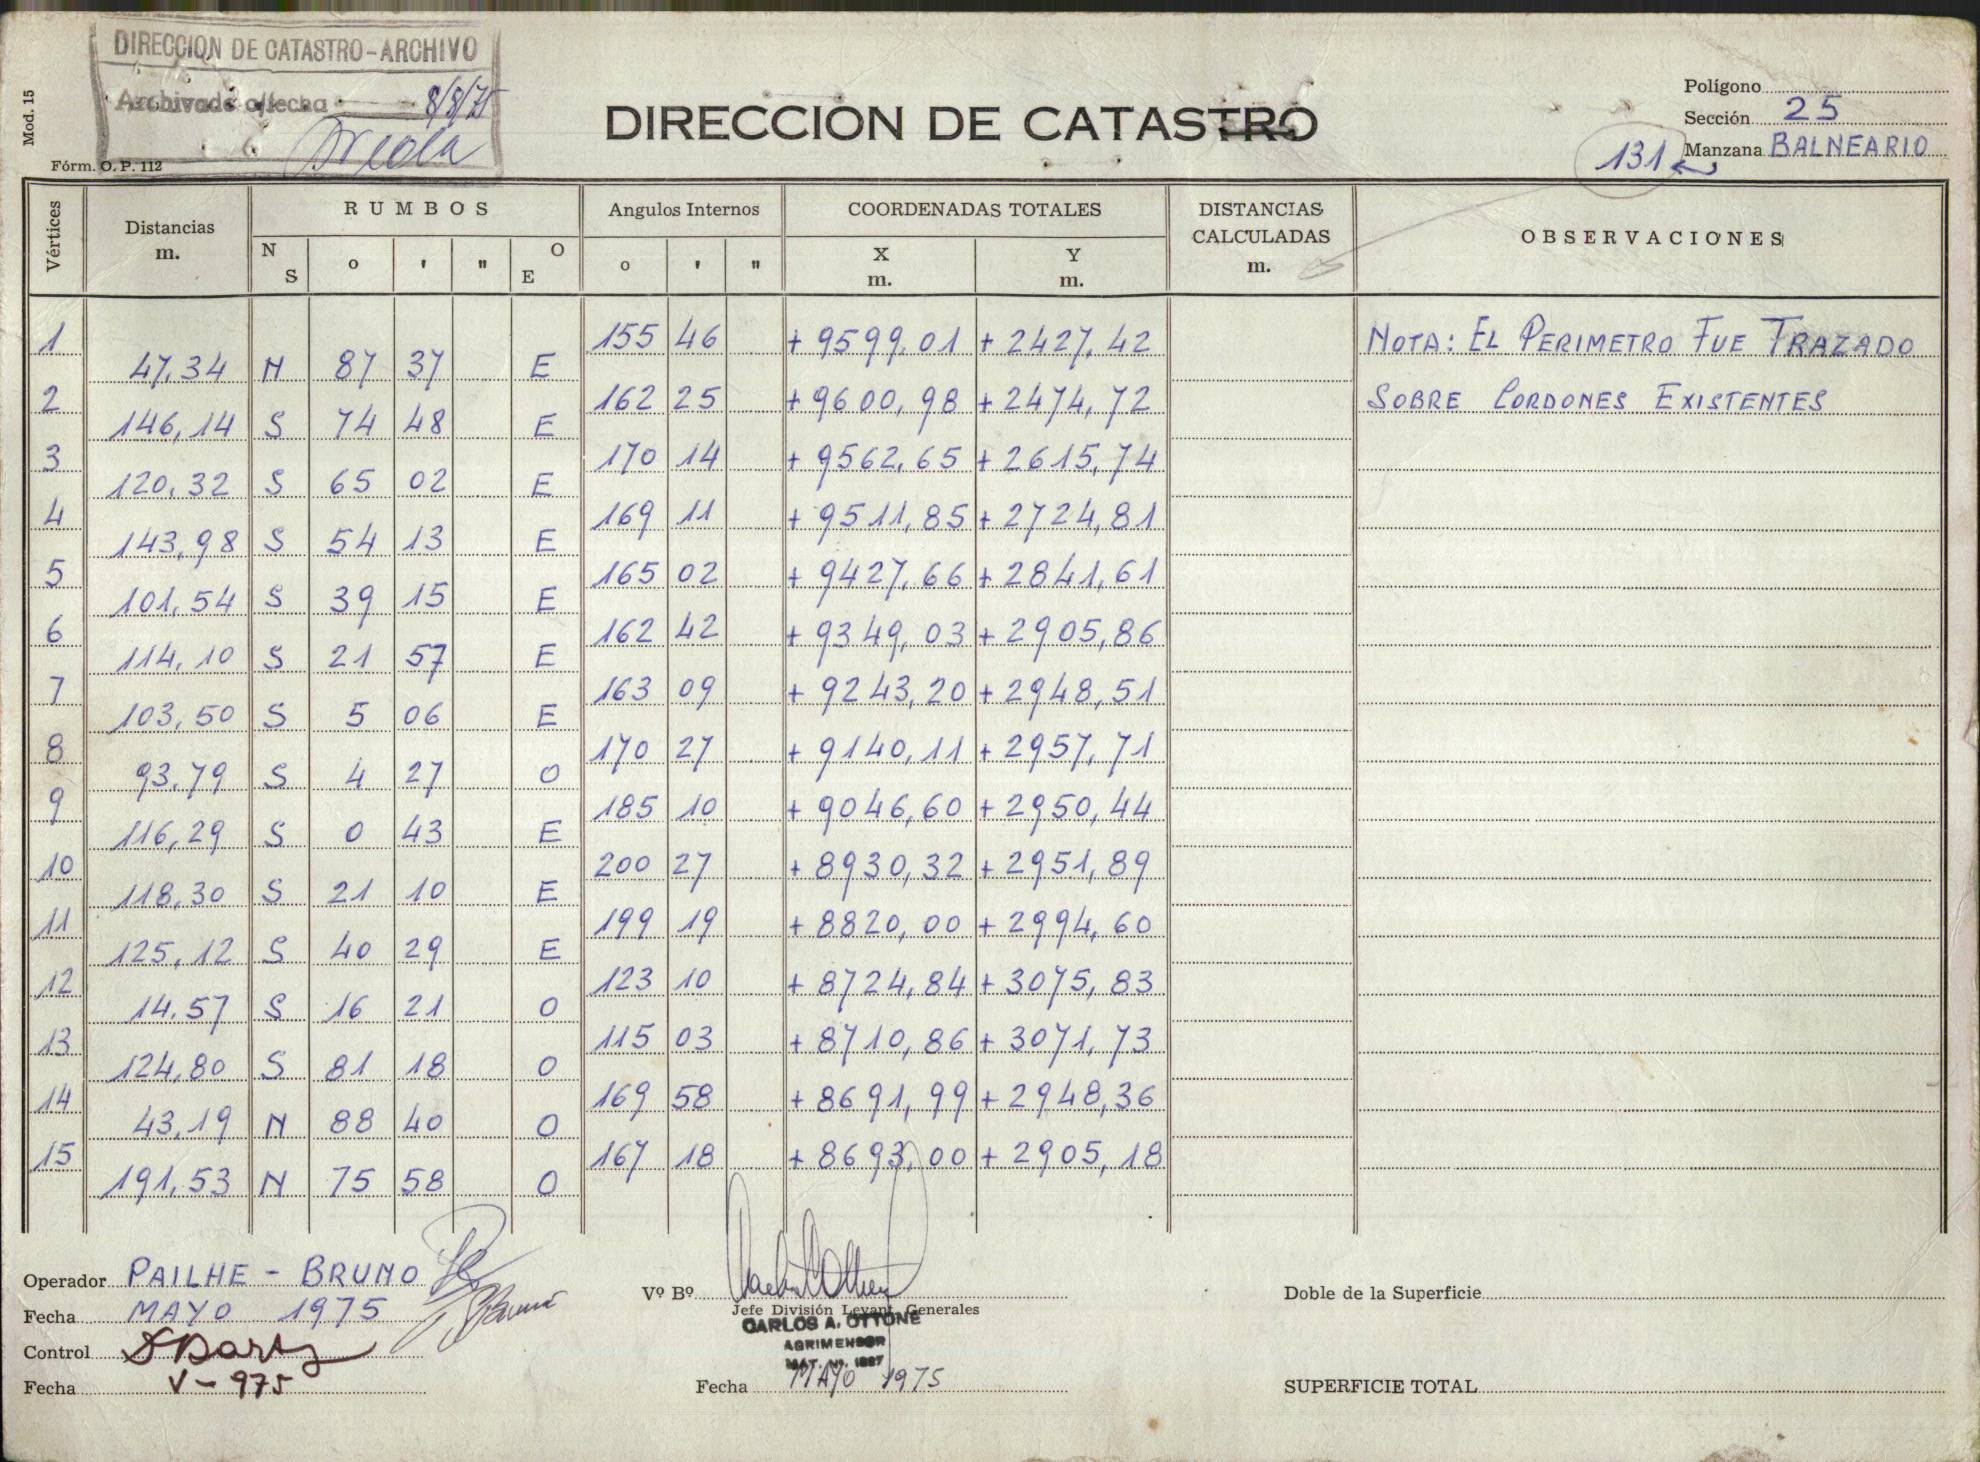 DIRECCION DE CATASTRO-ARCHIVO
Archivado c/fecha 8/8/75
Mod. 15
Fórm. O. P. 112
DIRECCION DE CATASTRO
Polígono
Sección 25
131 Manzana BALNEARIO
Vértices Distancias m. RUMBOS N S o ' " O E Angulos Internos o ' " COORDENADAS TOTALES X m. Y m. DISTANCIAS CALCULADAS m. OBSERVACIONES
1 155 46 + 9599,01 + 2427,42 NOTA: EL PERIMETRO FUE TRAZADO
47,34 N 87 37 E
2 162 25 + 9600,98 + 2474,72 SOBRE CORDONES EXISTENTES
146,14 S 74 48 E
3 170 14 + 9562,65 + 2615,74
120,32 S 65 02 E
4 169 11 + 9511,85 + 2724,81
143,98 S 54 13 E
5 165 02 + 9427,66 + 2841,61
101,54 S 39 15 E
6 162 42 + 9349,03 + 2905,86
114,10 S 21 57 E
7 163 09 + 9243,20 + 2948,51
103,50 S 5 06 E
8 170 27 + 9140,11 + 2957,71
93,79 S 4 27 O
9 185 10 + 9046,60 + 2950,44
116,29 S 0 43 E
10 200 27 + 8930,32 + 2951,89
118,30 S 21 10 E
11 199 19 + 8820,00 + 2994,60
125,12 S 40 29 E
12 123 10 + 8724,84 + 3075,83
14,57 S 16 21 O
13 115 03 + 8710,86 + 3071,73
124,80 S 81 18 O
14 169 58 + 8691,99 + 2948,36
43,19 N 88 40 O
15 167 18 + 8693,00 + 2905,18
191,53 N 75 58 O
Operador PAILHE - BRUNO
Fecha MAYO 1975
Control
Fecha V-975
Vº Bº
Jefe División Levant. Generales
CARLOS A. OTTONE
AGRIMENSOR
MAT. Nº. 1887
Fecha MAYO 1975
Doble de la Superficie
SUPERFICIE TOTAL